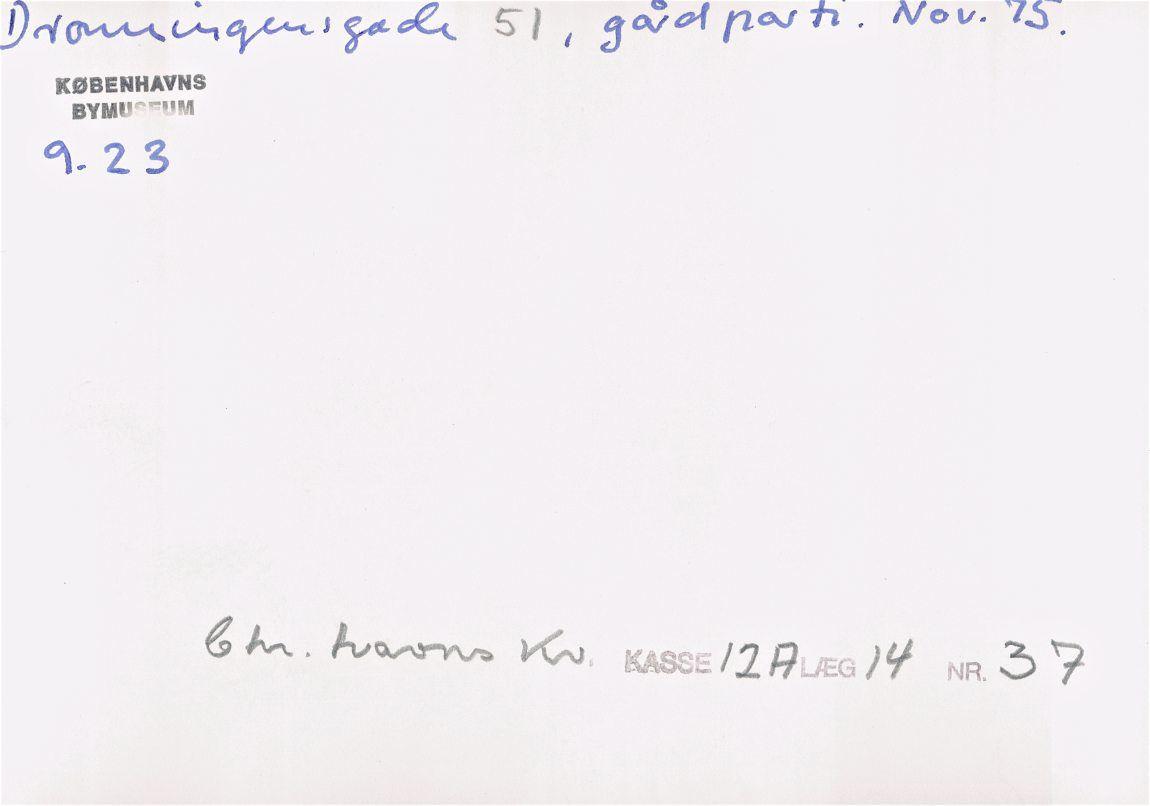 Dronningensgade 51, gårdparti. Nov. 75.
KØBENHAVNS
BYMUSEUM
9.23
Chr. havns Kv. KASSE 12A LÆG 14 NR. 37